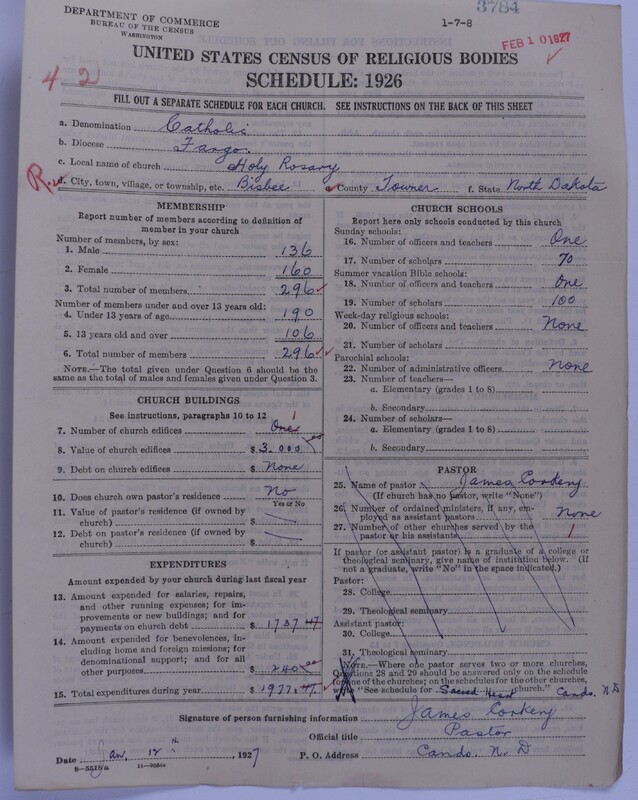 3784
DEPARTMENT OF COMMERCE
BUREAU OF THE CENSUS
WASHINGTON
1-7-8
FEB 10 1927
UNITED STATES CENSUS OF RELIGIOUS BODIES
42
SCHEDULE: 1926
FILL OUT A SEPARATE SCHEDULE FOR EACH CHURCH. SEE INSTRUCTIONS ON THE BACK OF THIS SHEET
a. Denomination Catholic
b. Diocese Fargo
c. Local name of church Holy Rosary
d. City, town, village, or township, etc. Bisbee e. County Towner f. State North Dakota
MEMBERSHIP
Report number of members according to definition of
member in your church
Number of members, by sex:
1. Male 136
2. Female 160
3. Total number of members 296
Number of members under and over 13 years old:
4. Under 13 years of age 190
5. 13 years old and over 106
6. Total number of members 296
NOTE.—The total given under Question 6 should be
same as the total of males and females given under Question 3.
CHURCH BUILDINGS
See instructions, paragraphs 10 to 12
1
7. Number of church edifices One
8. Value of church edifices $ 3.000 00
9. Debt on church edifices $ None
10. Does church own pastor's residence No
Yes or No
11. Value of pastor's residence (if owned by
church) $
12. Debt on pastor's residence (if owned by
church) $
EXPENDITURES
Amount expended by your church during last fiscal year
13. Amount expended for salaries, repairs,
and other running expenses; for im-
provements or new buildings; and for
payments on church debt $ 1737 47
14. Amount expended for benevolences, in-
cluding home and foreign missions; for
denominational support; and for all
other purposes $ 240 00
15. Total expenditures during year $ 1977.47
CHURCH SCHOOLS
Report here only schools conducted by this church
Sunday schools:
16. Number of officers and teachers One
17. Number of scholars 70
Summer vacation Bible schools:
18. Number of officers and teachers One
19. Number of scholars 100
Week-day religious schools:
20. Number of officers and teachers None
21. Number of scholars
Parochial schools:
22. Number of administrative officers None
23. Number of teachers—
a. Elementary (grades 1 to 8)
b. Secondary
24. Number of scholars—
a. Elementary (grades 1 to 8)
b. Secondary
PASTOR
25. Name of pastor James Conkery
(If church has no pastor, write "None")
26. Number of ordained ministers, if any, em-
ployed as assistant pastors None
27. Number of other churches served by the
pastor or his assistants 1
If pastor (or assistant pastor) is a graduate of a college or
theological seminary, give name of institution below. (If
not a graduate, write "No" in the space indicated.)
Pastor:
28. College
29. Theological seminary
Assistant pastor:
30. College
31. Theological seminary
NOTE.—Where one pastor serves two or more churches,
Questions 28 and 29 should be answered only on the schedule
for one of the churches; on the schedules for the other churches,
write "See schedule for Sacred Heart church." Cando. N.D
Signature of person furnishing information James Conkery
Official title Pastor
Date Jan. 12th, 1927 P. O. Address Cando. N. D